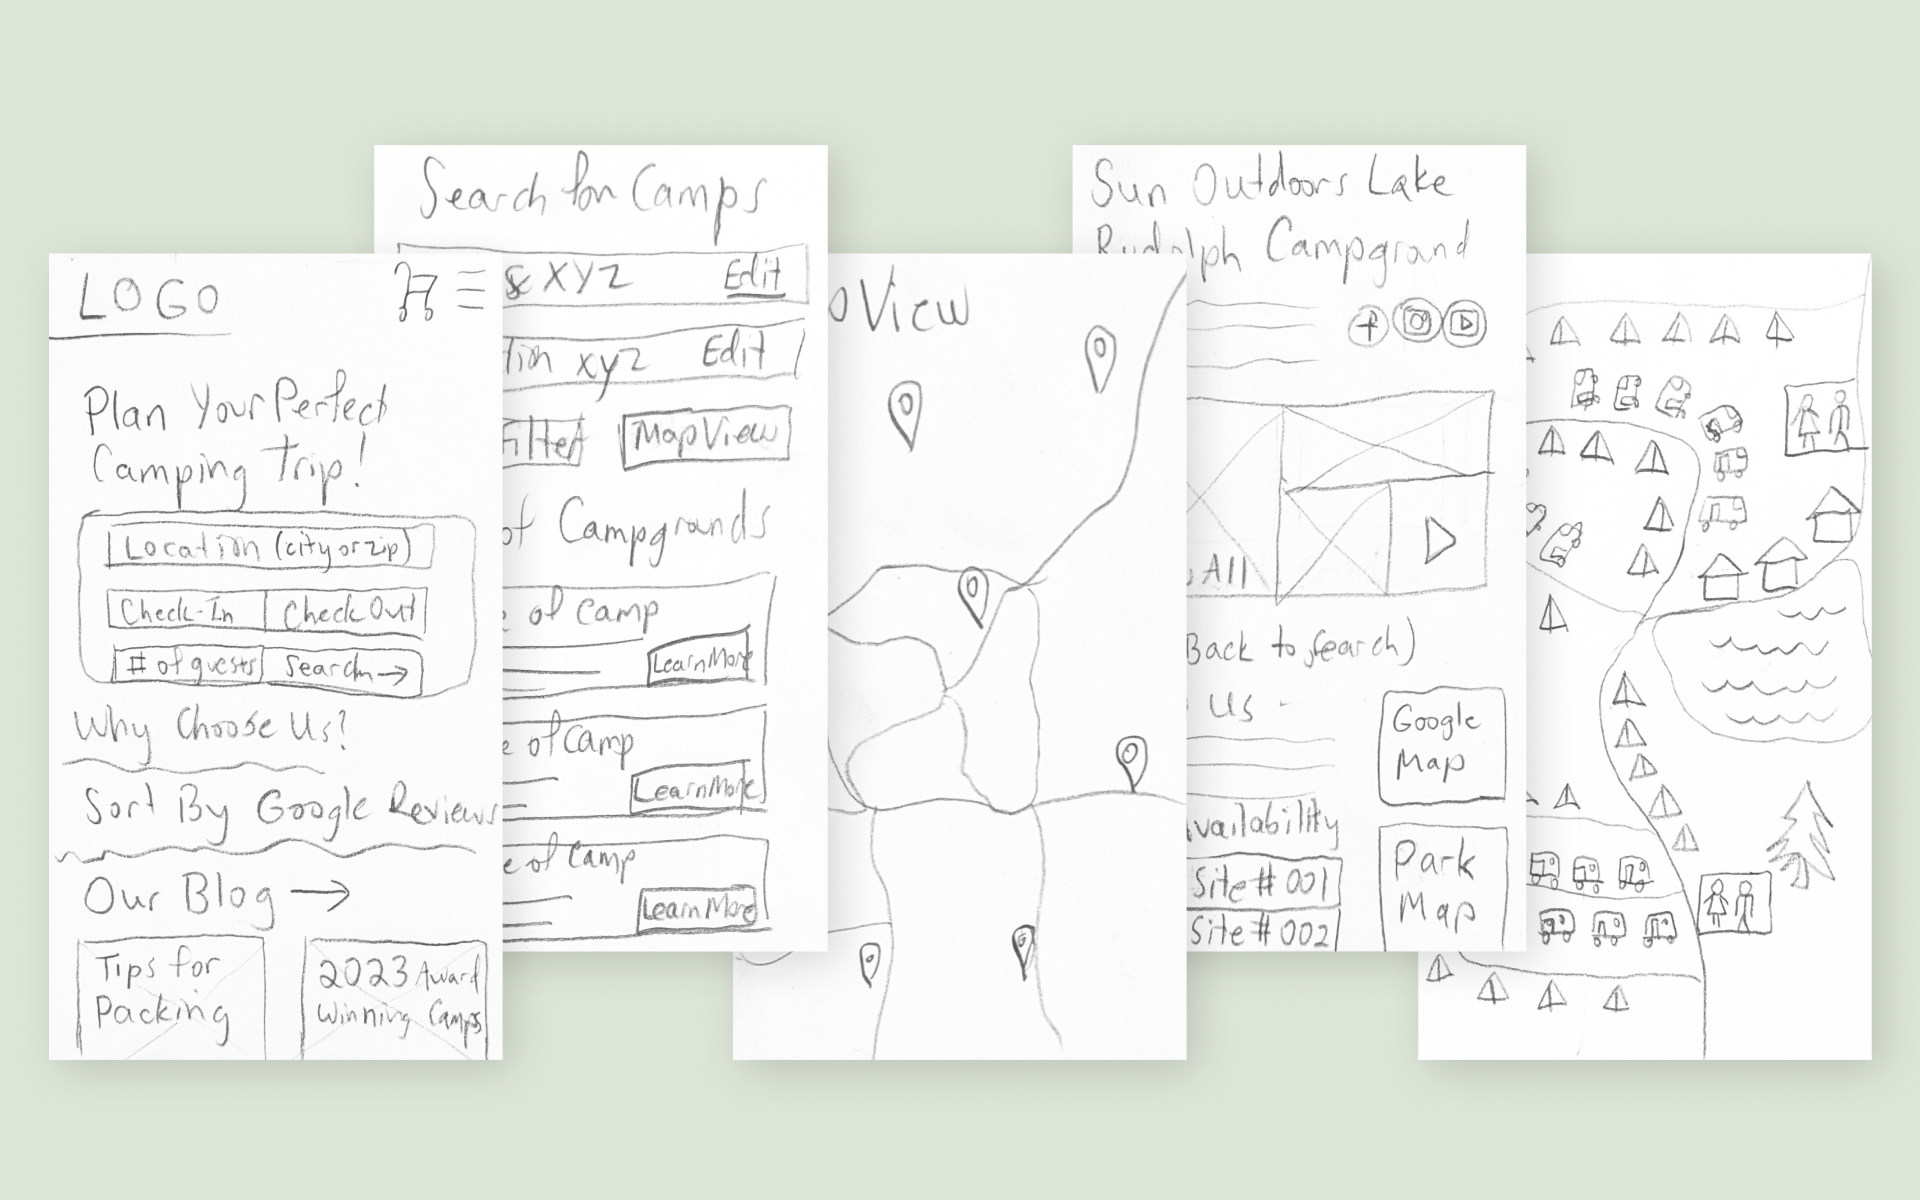 LOGO
Plan Your Perfect
Camping Trip!
Location (city or zip)
Check-In
Check Out
# of guests
Search →
Why Choose Us?
Sort By Google Reviews
Our Blog →
Tips for
Packing
2023 Award
Winning Camps
Search for Camps
& XYZ Edit
tion xyz Edit
Filter
Map View
of Campgrounds
e of Camp
Learn More
e of Camp
Learn More
e of Camp
Learn More
View
Sun Outdoors Lake
Rudolph Campground
All
(Back to Search)
Us
Google
Map
Availability
Site # 001
Site # 002
Park
Map